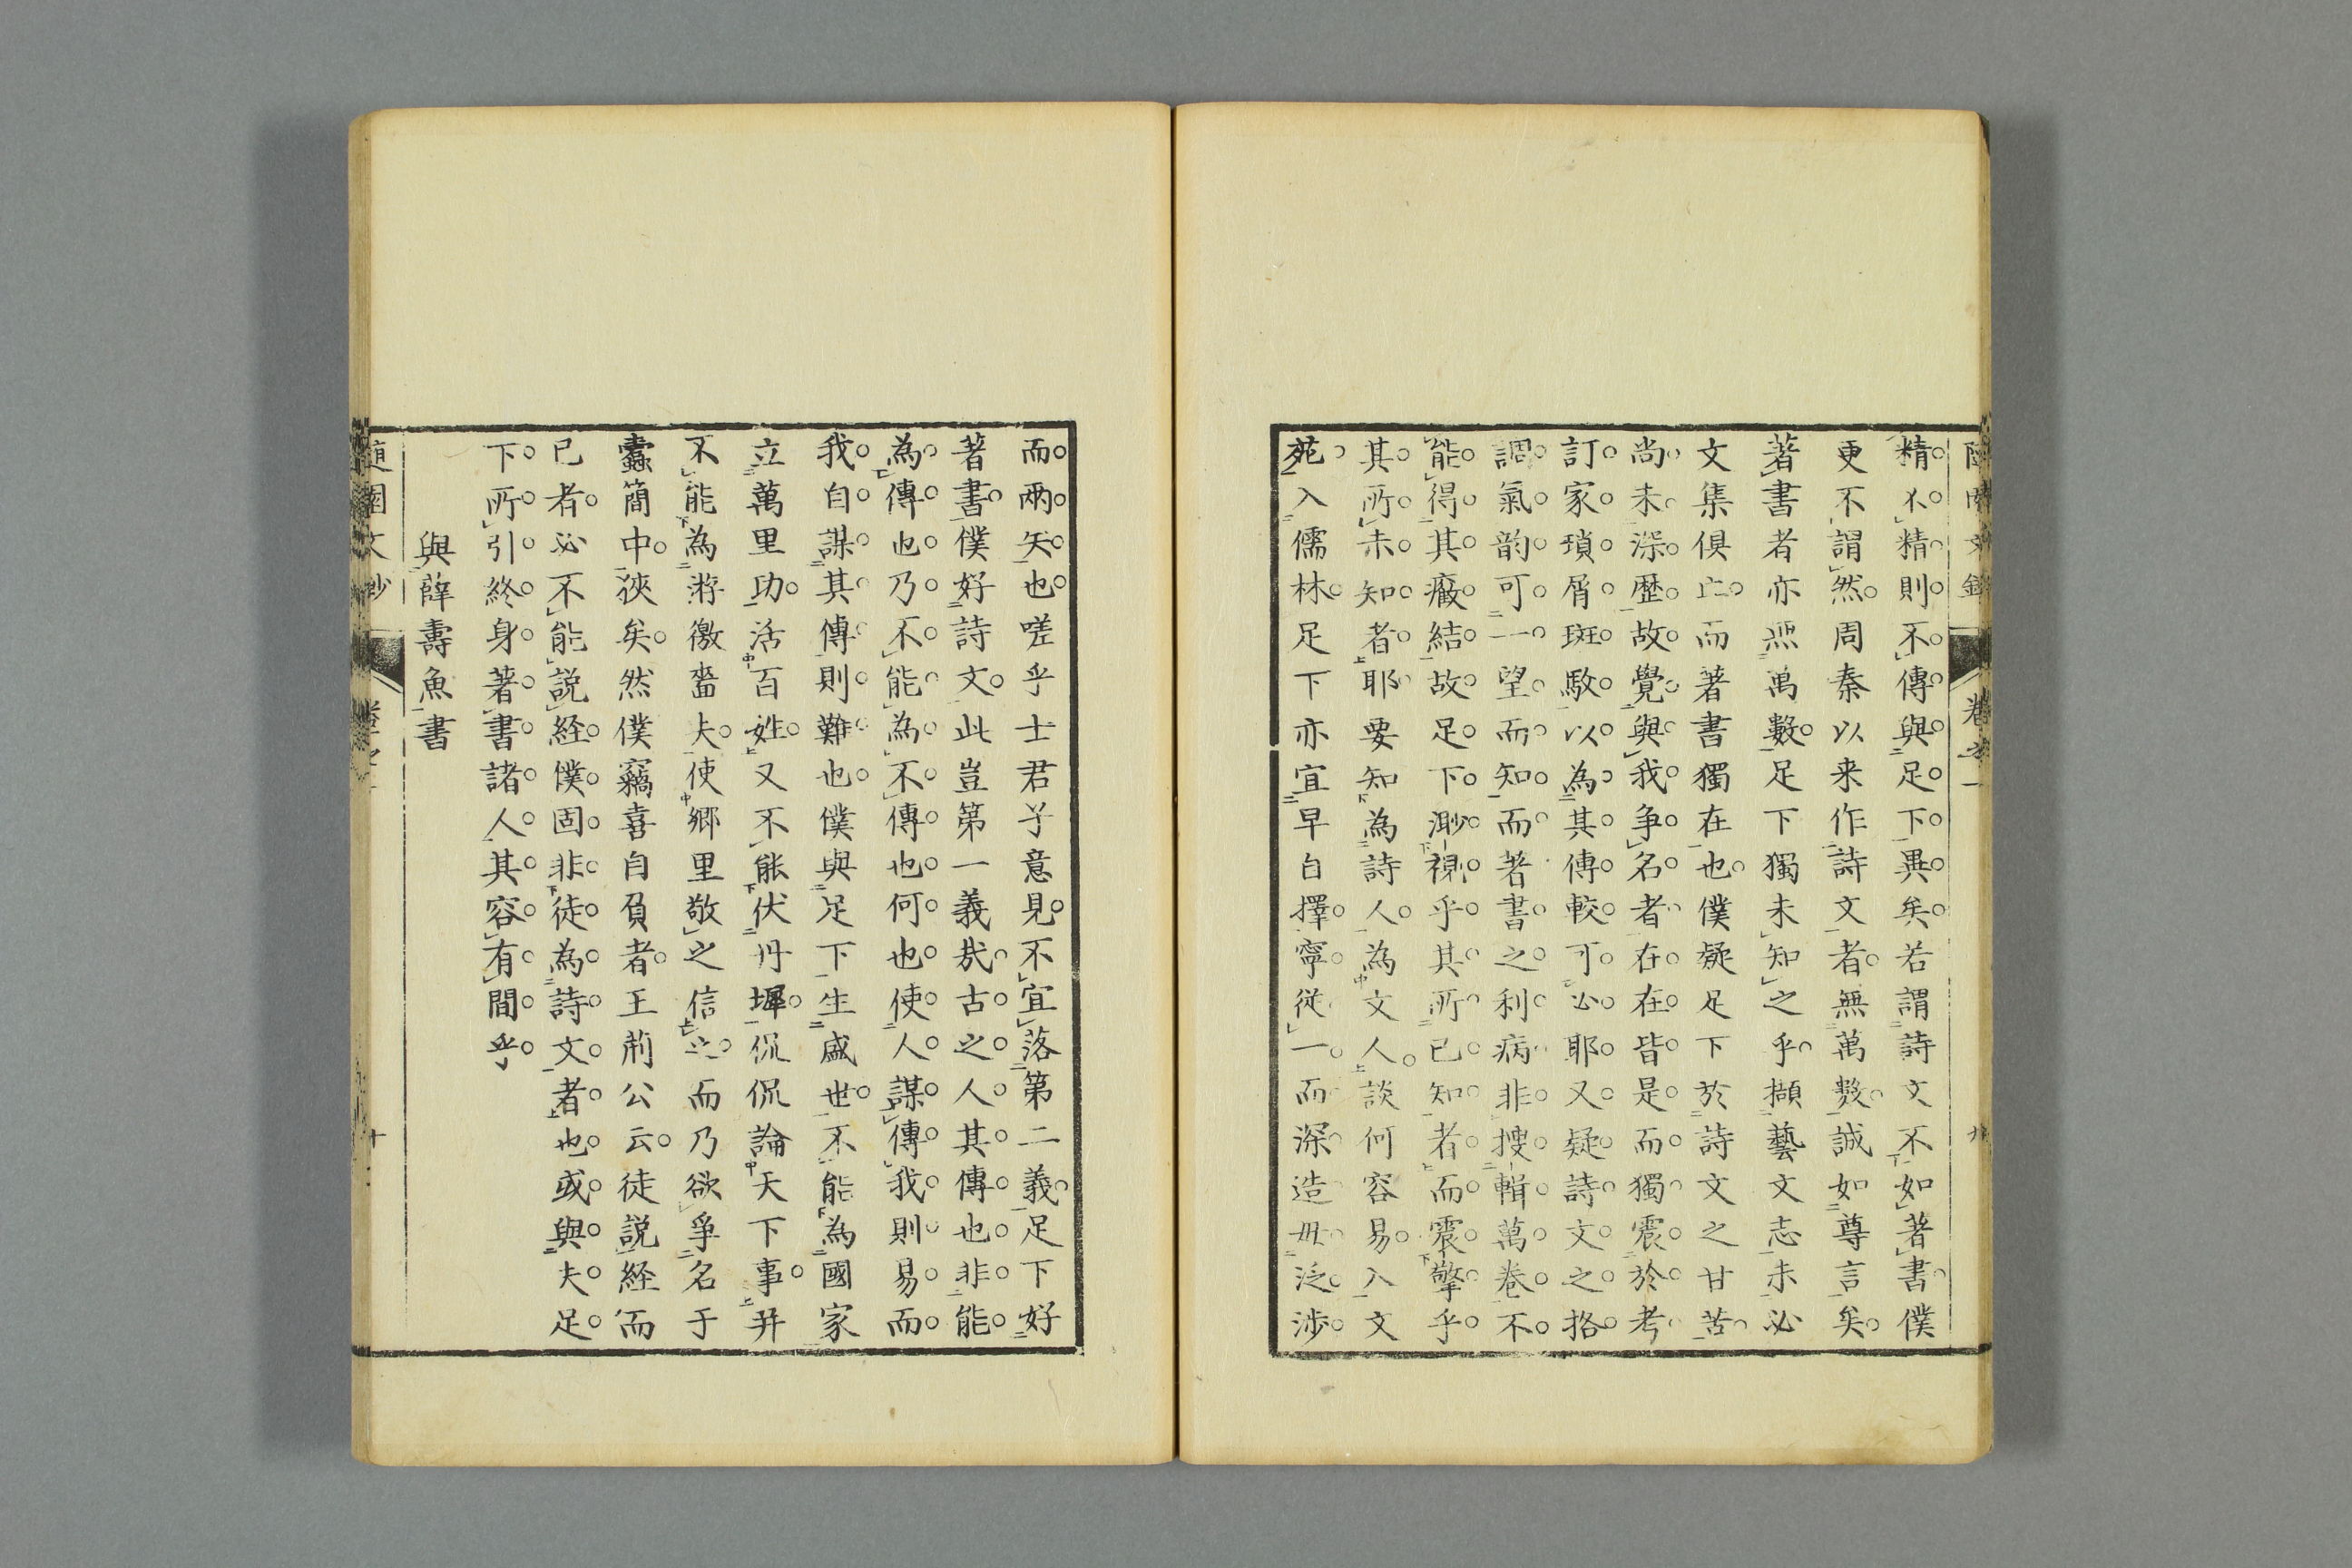 精不精則不傳與足下異矣若謂詩文不如著書僕
更不謂然周秦以来作詩文者無萬數誠如尊言矣
著書者亦無萬數足下獨未知之乎擷藝文志未必
文集俱亡而著書獨在也僕疑足下於詩文之甘苦
尚未深歷故覺與我爭名者在在皆是而獨震於考
訂家瑣屑斑駁以為其傳較可必耶又疑詩文之格
調氣韵可一望而知而著書之利病非搜輯萬卷不
能得其癥結故足下渺視乎其所已知者而震擎乎
其所未知者耶要知為詩人為文人談何容易入文
苑入儒林足下亦宜早自擇寧從一而深造毋泛涉
而兩失也嗟乎士君子意見不宜落第二義足下好
著書僕好詩文此豈第一義哉古之人其傳也非能
為傳也乃不能為不傳也何也使人謀傳我則易而
我自謀其傳則難也僕與足下生盛世不能為國家
立萬里功活百姓又不能伏丹墀侃侃論天下事并
不能為游徼嗇夫使鄉里敬之信之而乃欲爭名于
蠹簡中狹矣然僕竊喜自負者王荊公云徒說経而
已者必不能說経僕固非徒為詩文者也或與夫足
下所引終身著書諸人其容有間乎
與薛壽魚書
隨園文鈔 十